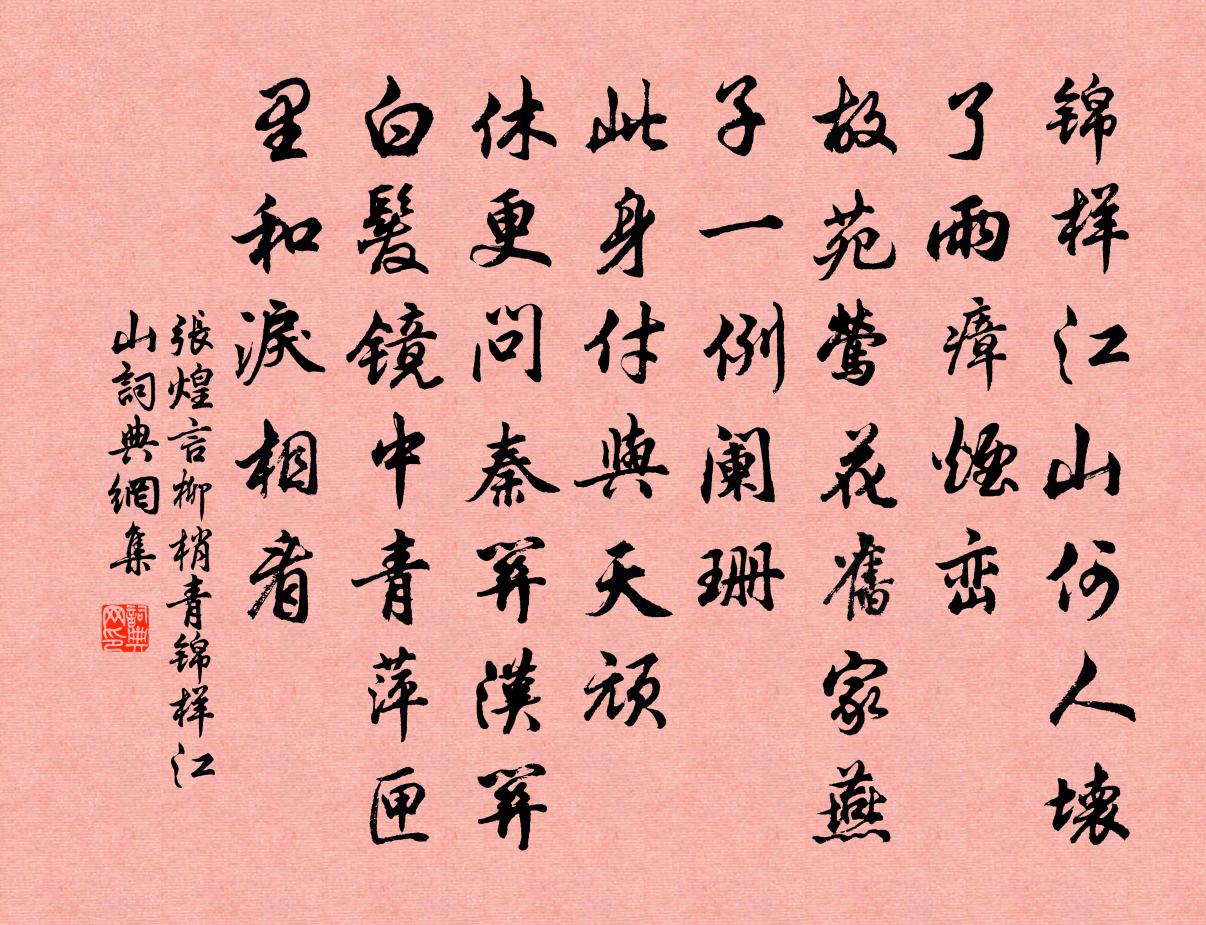 锦样江山何人壞
了雨瘴煙峦
故苑莺花舊家燕
子一例阑珊
此身付與天顽
休更问秦关漢关
白髮镜中青萍匣
里和淚相看
張煌言柳梢青锦样江
山詞典網集
詞典网印